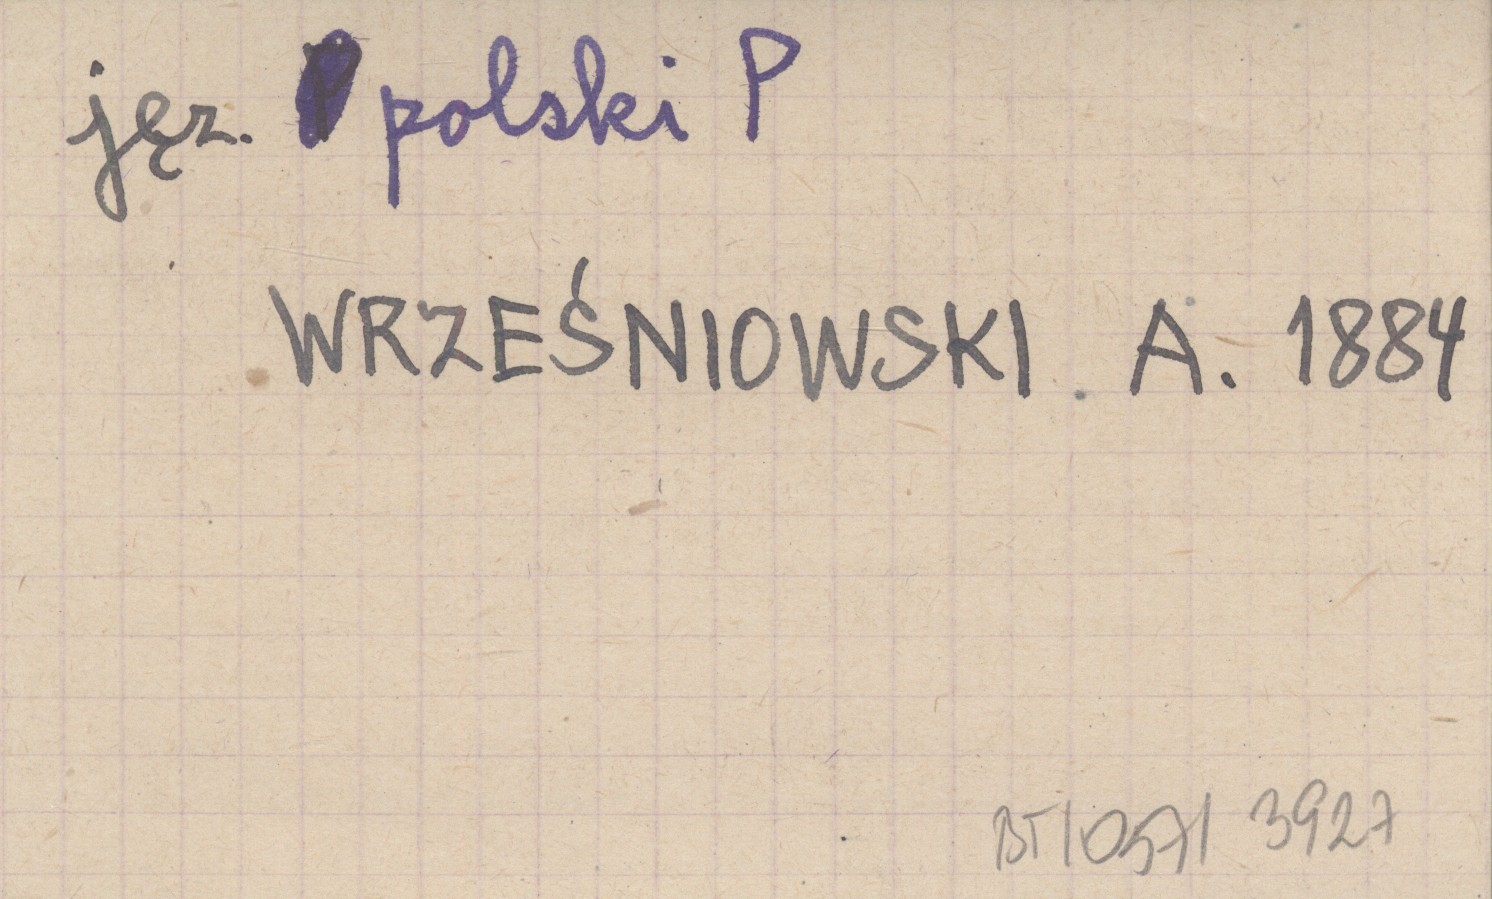 jęz. polski P
WRZEŚNIOWSKI A. 1884
BT/057/ 3927